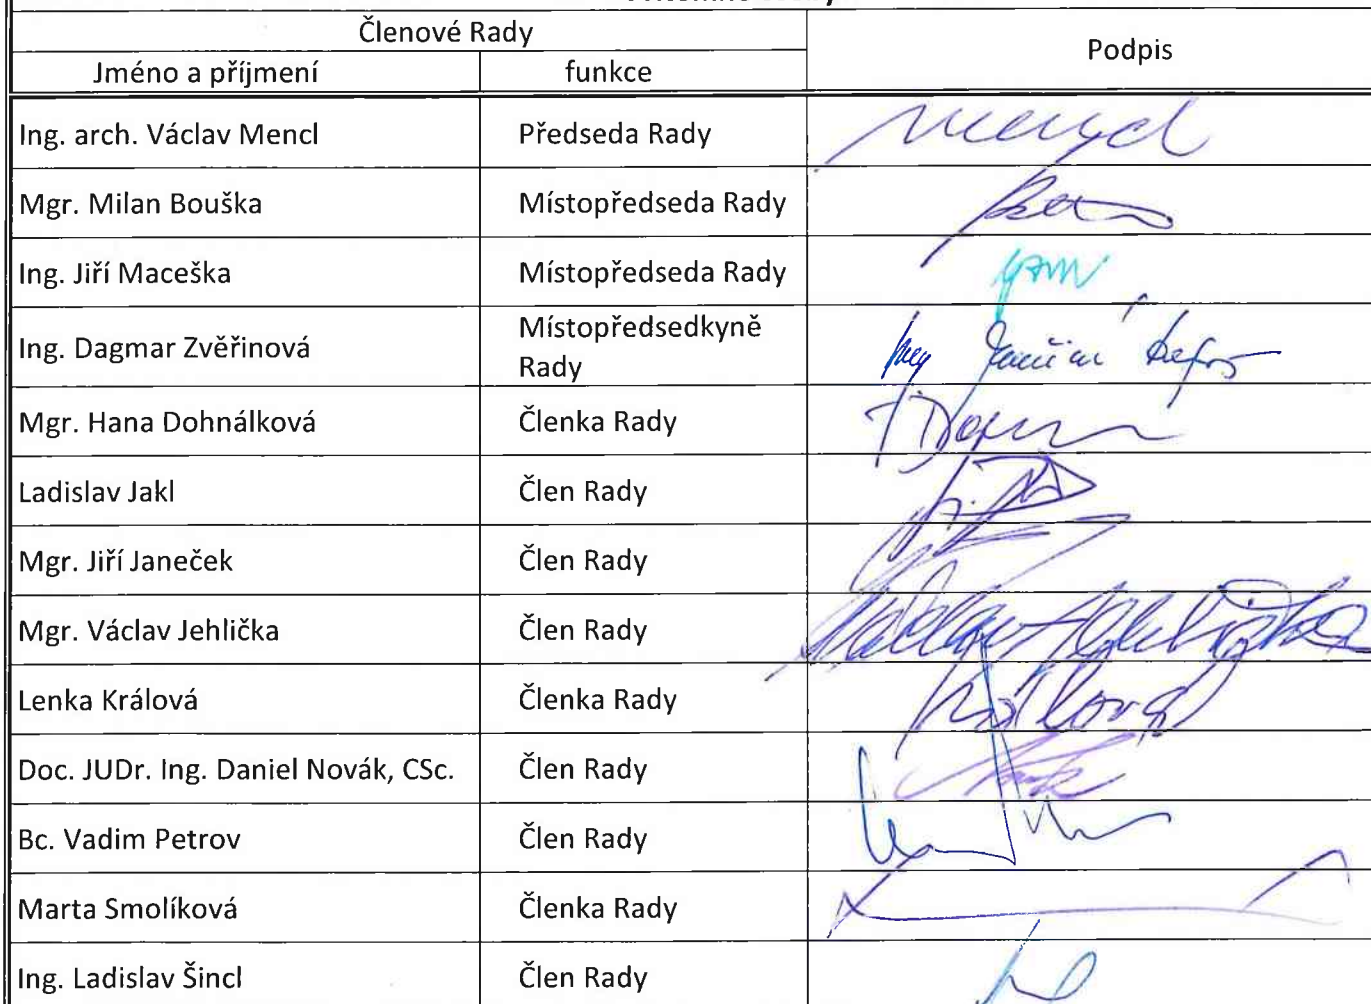 Členové Rady
Podpis
Jméno a příjmení funkce
Ing. arch. Václav Mencl Předseda Rady
Mgr. Milan Bouška Místopředseda Rady
Ing. Jiří Maceška Místopředseda Rady
Ing. Dagmar Zvěřinová Místopředsedkyně
Rady
Mgr. Hana Dohnálková Členka Rady
Ladislav Jakl Člen Rady
Mgr. Jiří Janeček Člen Rady
Mgr. Václav Jehlička Člen Rady Václav Jehlička
Lenka Králová Členka Rady Králová
Doc. JUDr. Ing. Daniel Novák, CSc. Člen Rady
Bc. Vadim Petrov Člen Rady
Marta Smolíková Členka Rady
Ing. Ladislav Šincl Člen Rady